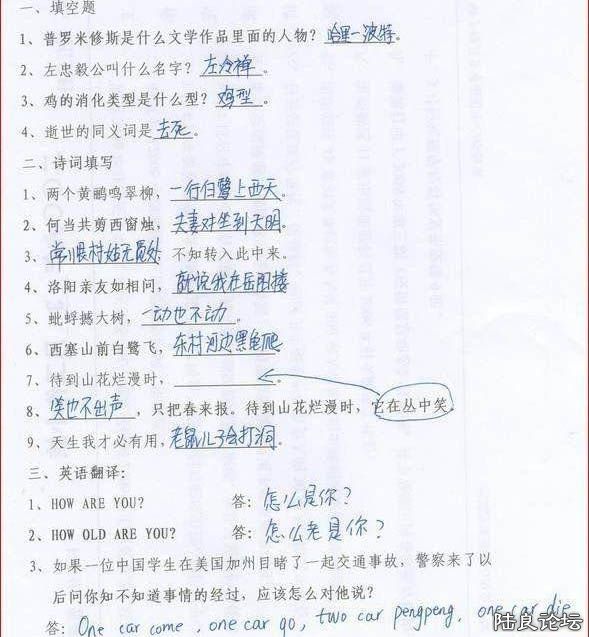 一、填空题
1、普罗米修斯是什么文学作品里面的人物？哈里-波特。
2、左忠毅公叫什么名字？左冷禅。
3、鸡的消化类型是什么型？鸡型。
4、逝世的同义词是去死。
二、诗词填写
1、两个黄鹂鸣翠柳，一行白鹭上西天。
2、何当共剪西窗烛，夫妻对坐到天明。
3、常恨村姑无觅处，不知转入此中来。
4、洛阳亲友如相问，就说我在岳阳楼
5、蚍蜉撼大树，一动也不动。
6、西塞山前白鹭飞，东村河边黑龟爬
7、待到山花烂漫时，。
8、笑也不出声，只把春来报。待到山花烂漫时，它在丛中笑。
9、天生我才必有用，老鼠儿子会打洞。
三、英语翻译：
1、HOW ARE YOU？ 答：怎么是你？
2、HOW OLD ARE YOU？ 答：怎么老是你？
3、如果一位中国学生在美国加州目睹了一起交通事故，警察来了以
后问你知不知道事情的经过，应该怎么对他说？
答：One car come, one car go, two car pengpeng, one car die
陆良论坛